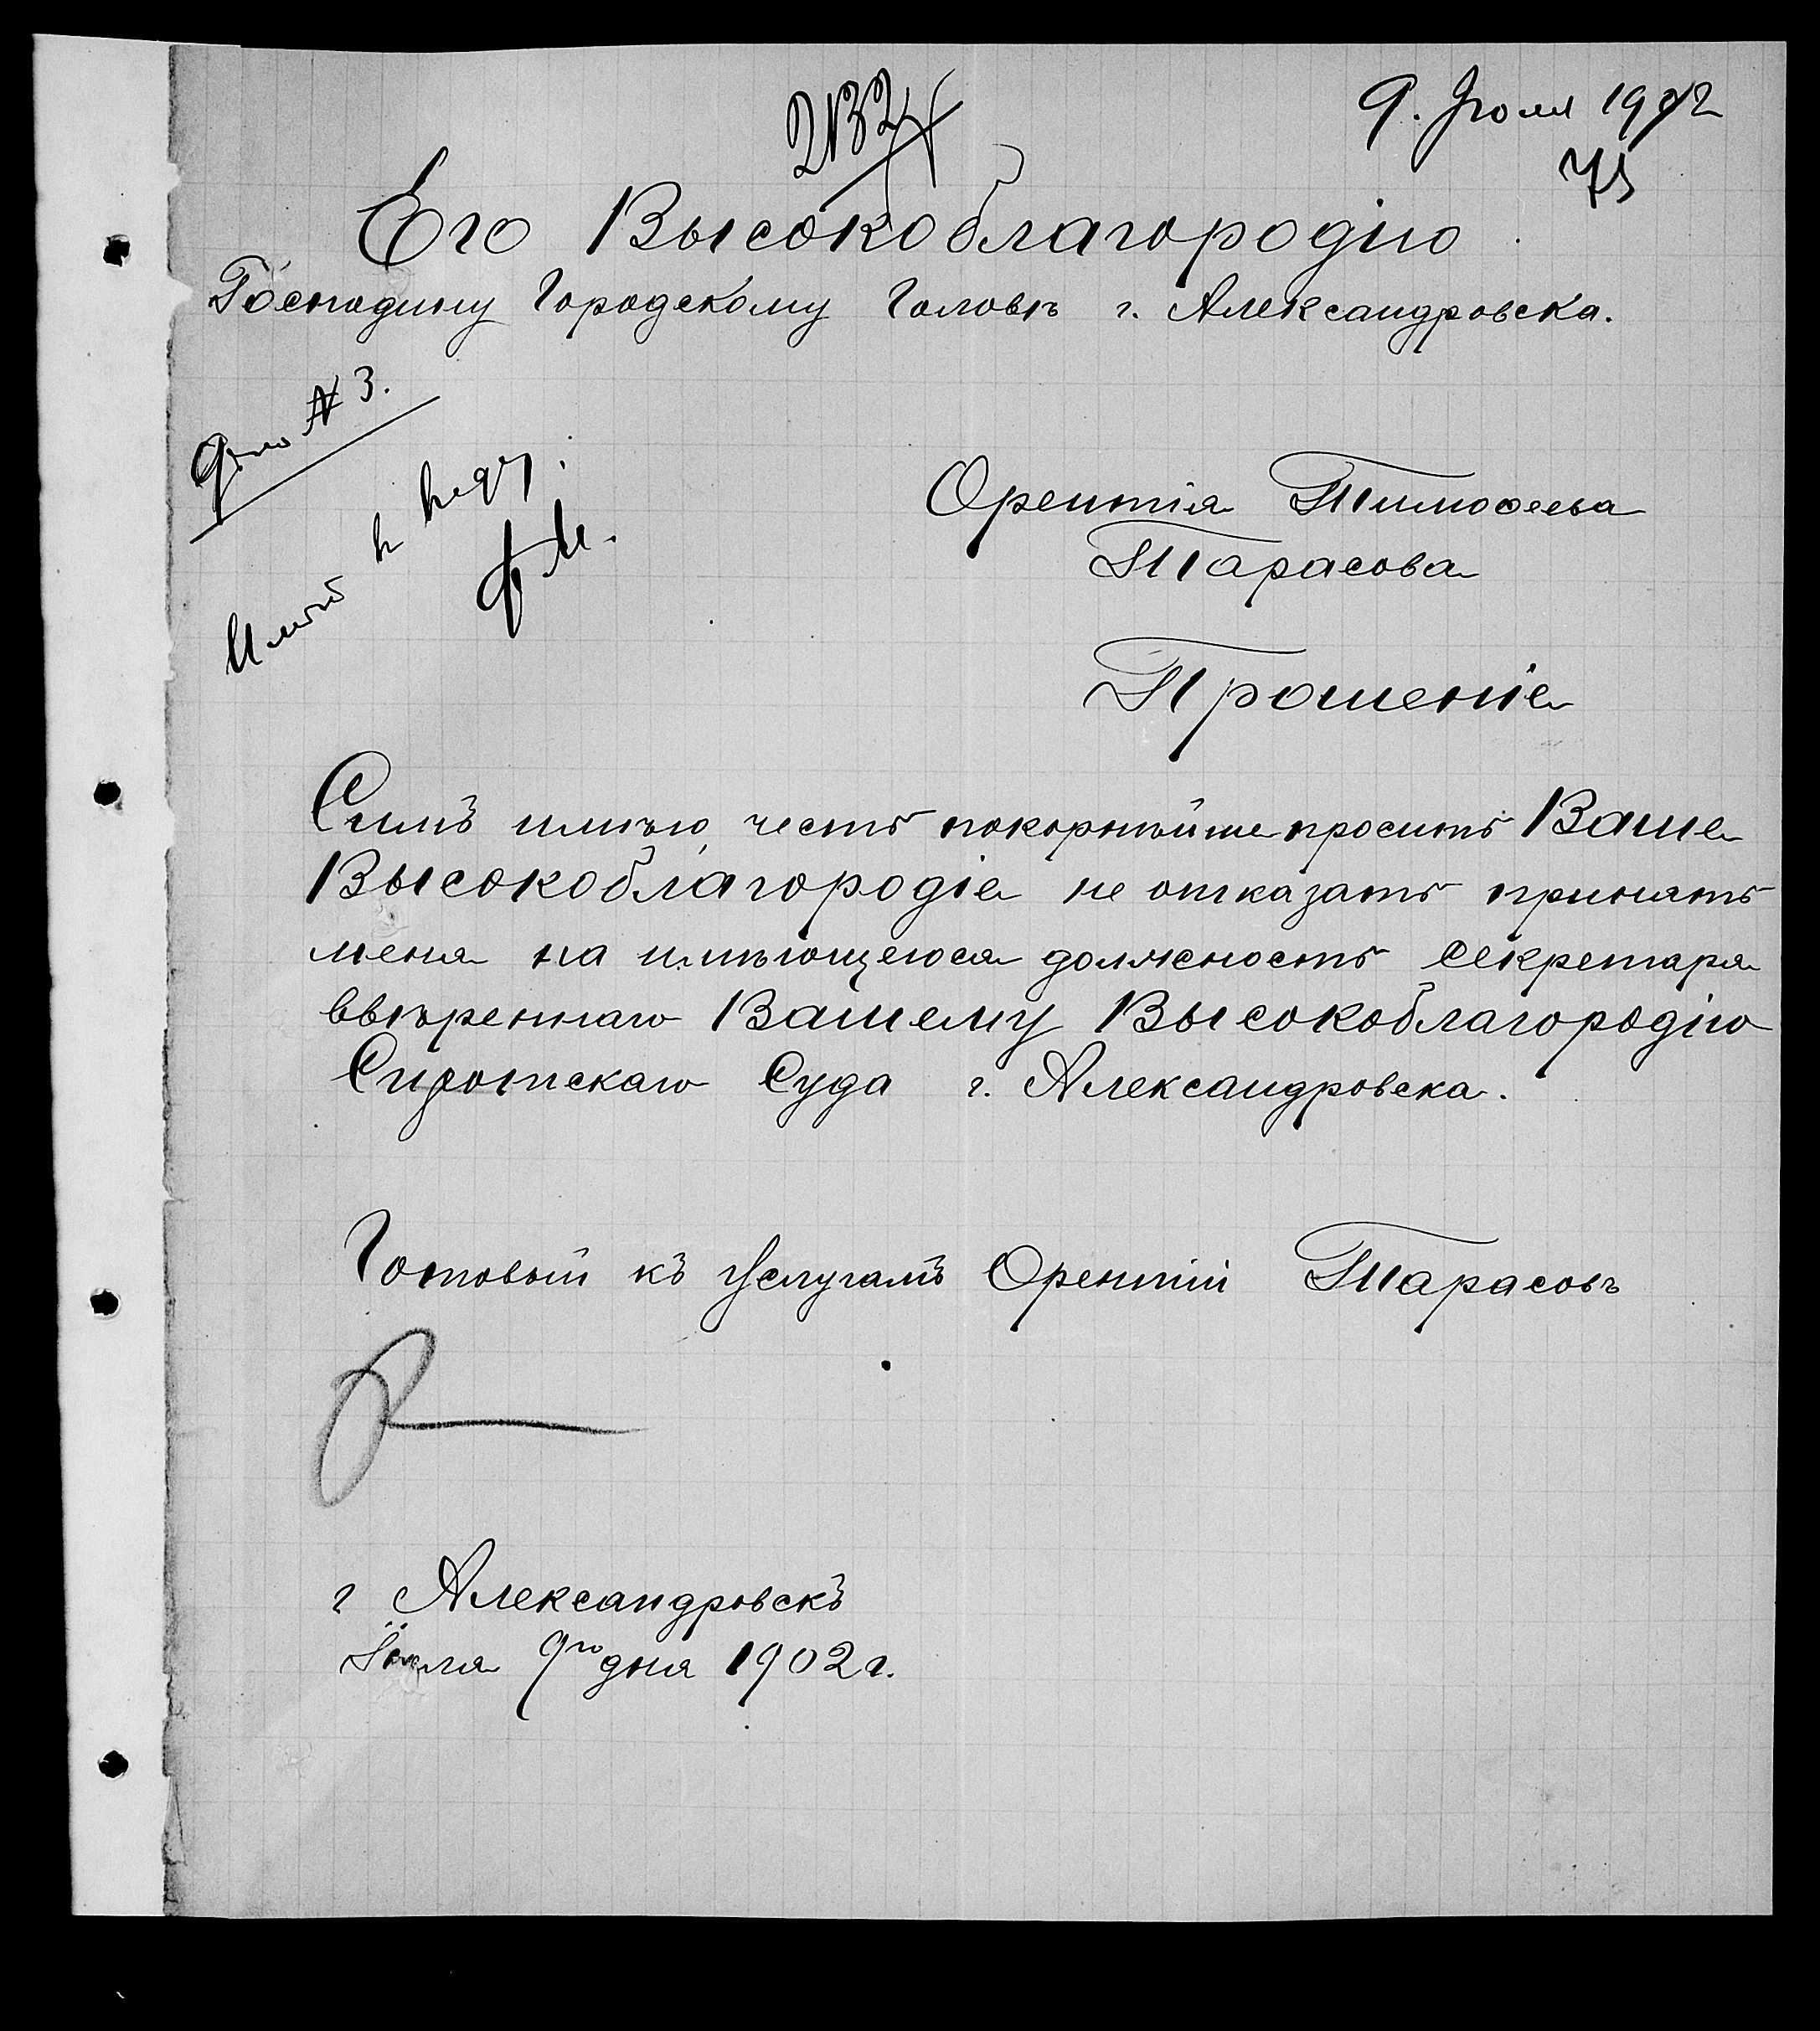 2132
9. Іюля 1902
75
Его Высокоблагородію
Господину Городскому Головѣ г. Александровска.
Дѣло № 3.
Орентія Тимофеева
Тарасова
Прошеніе
Симъ имѣю честь покорнѣйше просить Ваше
Высокоблагородіе не отказать принять
меня на имѣющеюся должность секретаря
ввѣреннаго Вашему Высокоблагородію
Сиротскаго Суда г. Александровска.
Готовый къ услугамъ Орентій Тарасовъ
г Александровскъ
Іюля 9го дня 1902 г.